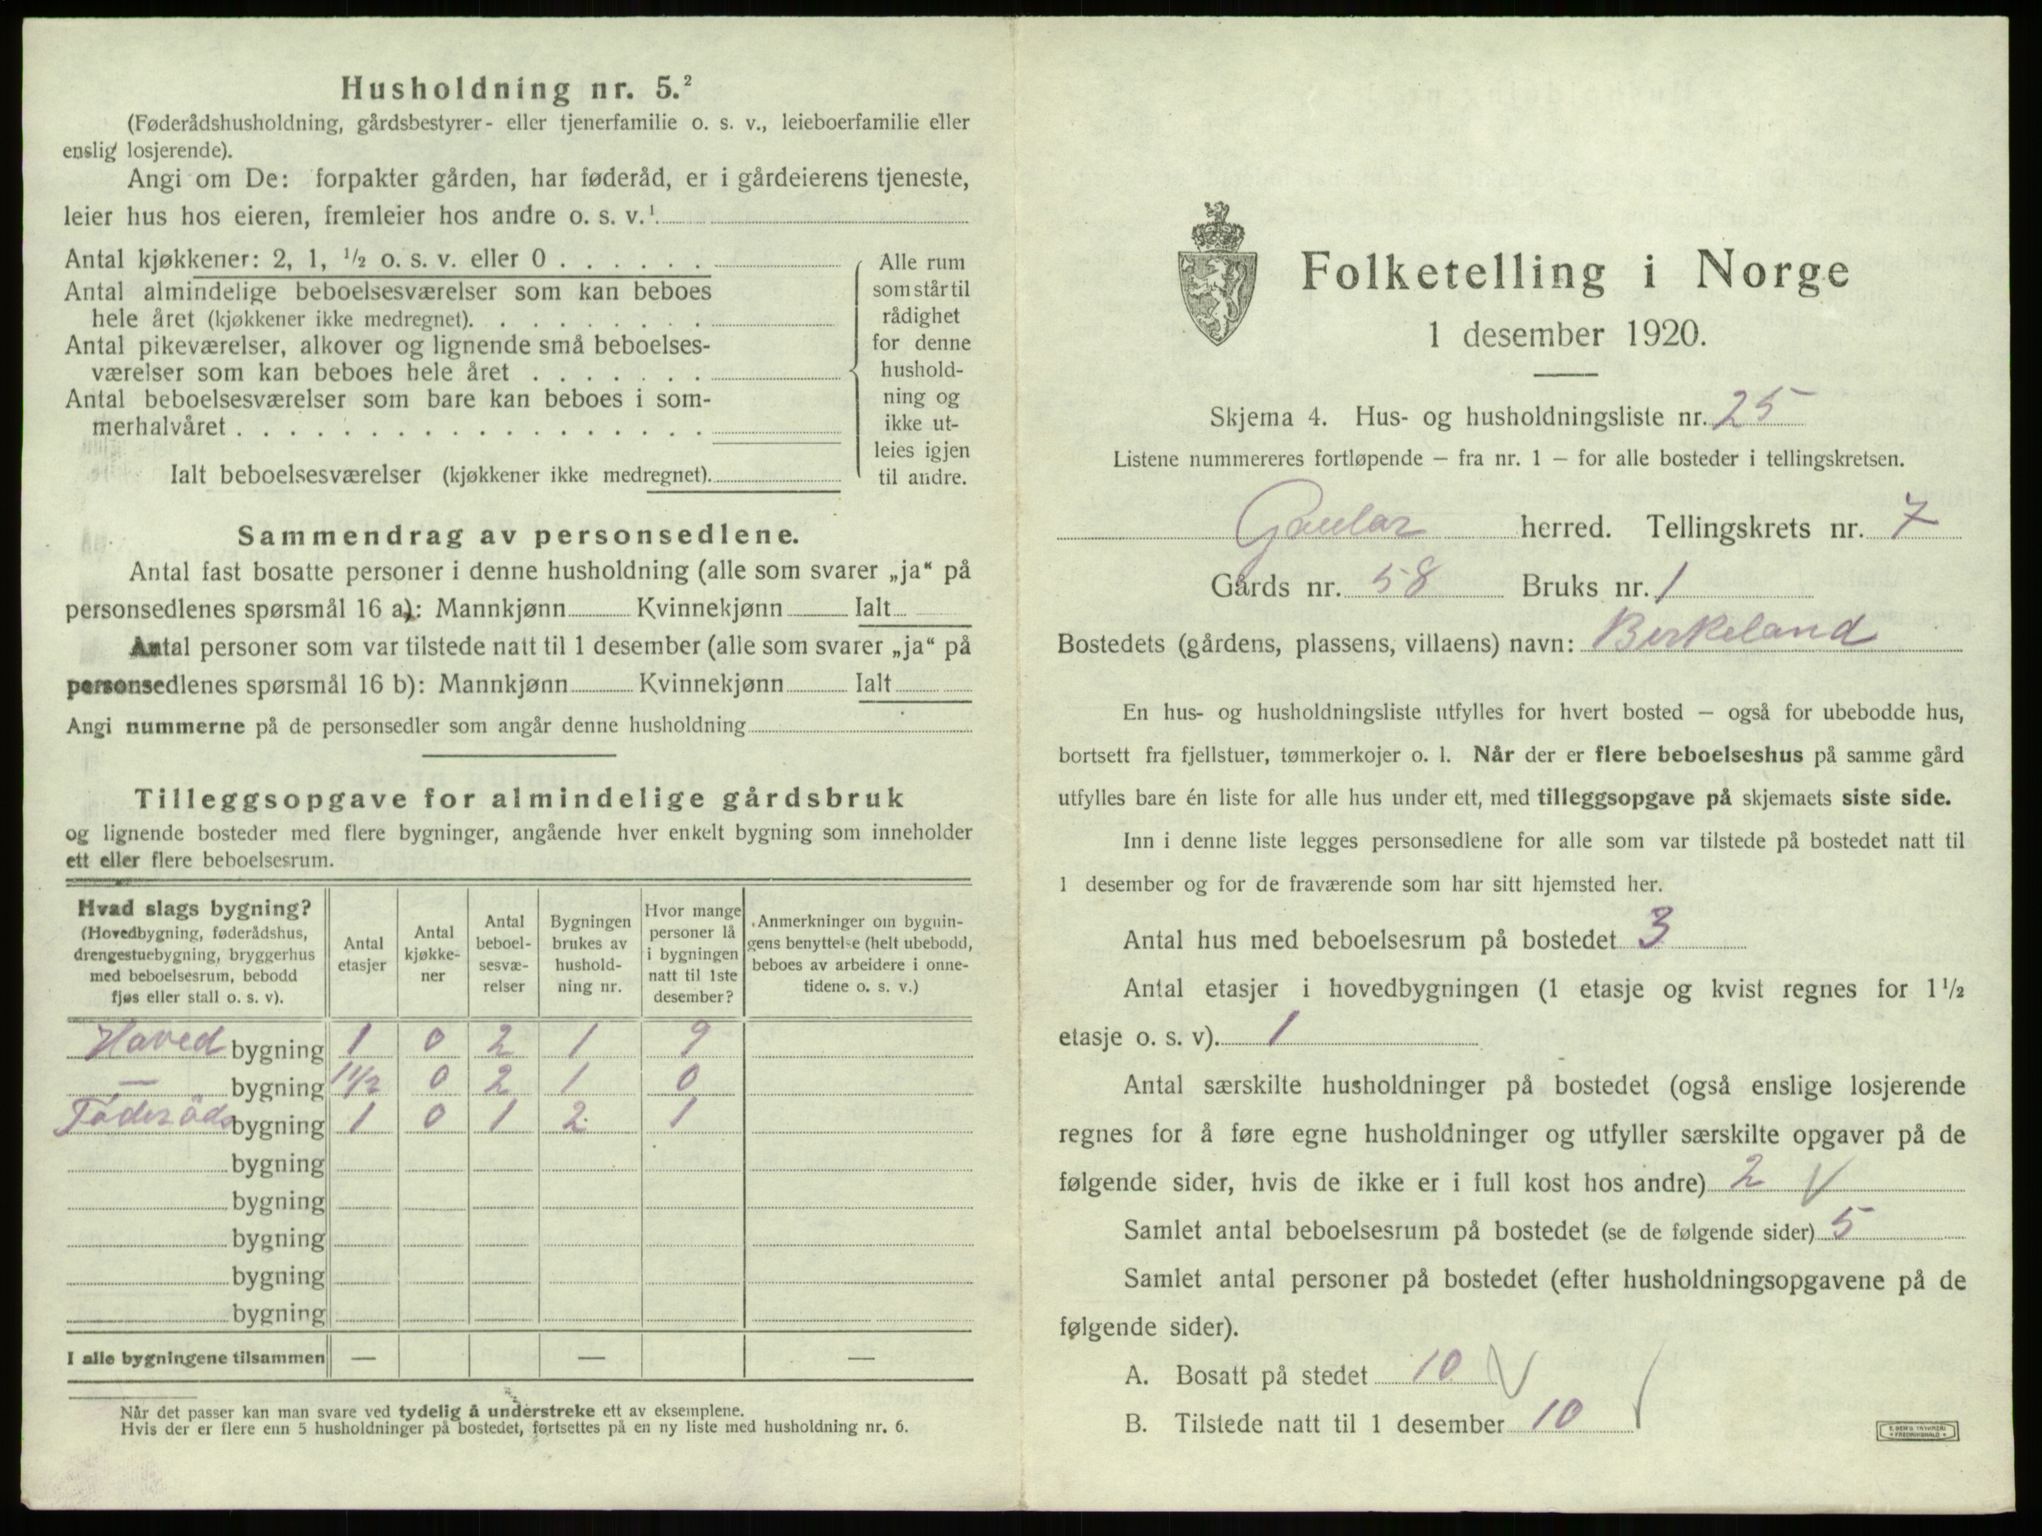 Husholdning nr. 5.²
(Føderådshusholdning, gårdsbestyrer- eller tjenerfamilie o. s. v., leieboerfamilie eller
enslig losjerende).
Angi om De: forpakter gården, har føderåd, er i gårdeierens tjeneste,
leier hus hos eieren, fremleier hos andre o. s. v.¹
Antal kjøkkener: 2, 1, ½ o. s. v. eller 0 . . . . . .
Antal almindelige beboelsesværelser som kan beboes
hele året (kjøkkener ikke medregnet). . . . . . . . .
Antal pikeværelser, alkover og lignende små beboelses-
værelser som kan beboes hele året . . . . . . .
Antal beboelsesværelser som bare kan beboes i som-
merhalvåret . . . . . . . . . . . . . . . . . .
Ialt beboelsesværelser (kjøkkener ikke medregnet).
Alle rum
som står til
rådighet
for denne
hushold-
ning og
ikke ut-
leies igjen
til andre.
Sammendrag av personsedlene.
Antal fast bosatte personer i denne husholdning (alle som svarer „ja“ på
personsedlenes spørsmål 16 a): Mannkjønn Kvinnekjønn Ialt
Antal personer som var tilstede natt til 1 desember (alle som svarer „ja“ på
personsedlenes spørsmål 16 b): Mannkjønn Kvinnekjønn Ialt
Angi nummerne på de personsedler som angår denne husholdning
Tilleggsopgave for almindelige gårdsbruk
og lignende bosteder med flere bygninger, angående hver enkelt bygning som inneholder
ett eller flere beboelsesrum.
Hvad slags bygning?
(Hovedbygning, føderådshus,
drengestuebygning, bryggerhus
med beboelsesrum, bebodd
fjøs eller stall o. s. v).
Antal
etasjer
Antal
kjøkke-
ner
Antal
beboel-
sesvæ-
relser
Bygningen
brukes av
hushold-
ning nr.
Hvor mange
personer lå
i bygningen
natt til 1ste
desember?
Anmerkninger om bygnin-
gens benyttelse (helt ubebodd,
beboes av arbeidere i onne-
tidene o. s. v.)
Hoved bygning 1 0 2 1 9
— bygning 1½ 0 2 1 0
Føderåds bygning 1 0 1 2 1
bygning
bygning
bygning
bygning
bygning
I alle bygningene tilsammen — — —
Når det passer kan man svare ved tydelig å understreke ett av eksemplene.
Hvis der er flere enn 5 husholdninger på bostedet, fortsettes på en ny liste med husholdning nr. 6.
Folketelling i Norge
1 desember 1920.
Skjema 4. Hus- og husholdningsliste nr. 25
Listene nummereres fortløpende – fra nr. 1 – for alle bosteder i tellingskretsen.
Gaular herred. Tellingskrets nr. 7
Gårds nr. 58 Bruks nr. 1
Bostedets (gårdens, plassens, villaens) navn: Birkeland
En hus- og husholdningsliste utfylles for hvert bosted – også for ubebodde hus,
bortsett fra fjellstuer, tømmerkojer o. l. Når der er flere beboelseshus på samme gård
utfylles bare én liste for alle hus under ett, med tilleggsopgave på skjemaets siste side.
Inn i denne liste legges personsedlene for alle som var tilstede på bostedet natt til
1 desember og for de fraværende som har sitt hjemsted her.
Antal hus med beboelsesrum på bostedet 3
Antal etasjer i hovedbygningen (1 etasje og kvist regnes for 1½
etasje o. s. v). 1
Antal særskilte husholdninger på bostedet (også enslige losjerende
regnes for å føre egne husholdninger og utfyller særskilte opgaver på de
følgende sider, hvis de ikke er i full kost hos andre) 2
Samlet antal beboelsesrum på bostedet (se de følgende sider) 5
Samlet antal personer på bostedet (efter husholdningsopgavene på de
følgende sider).
A. Bosatt på stedet 10
B. Tilstede natt til 1 desember 10